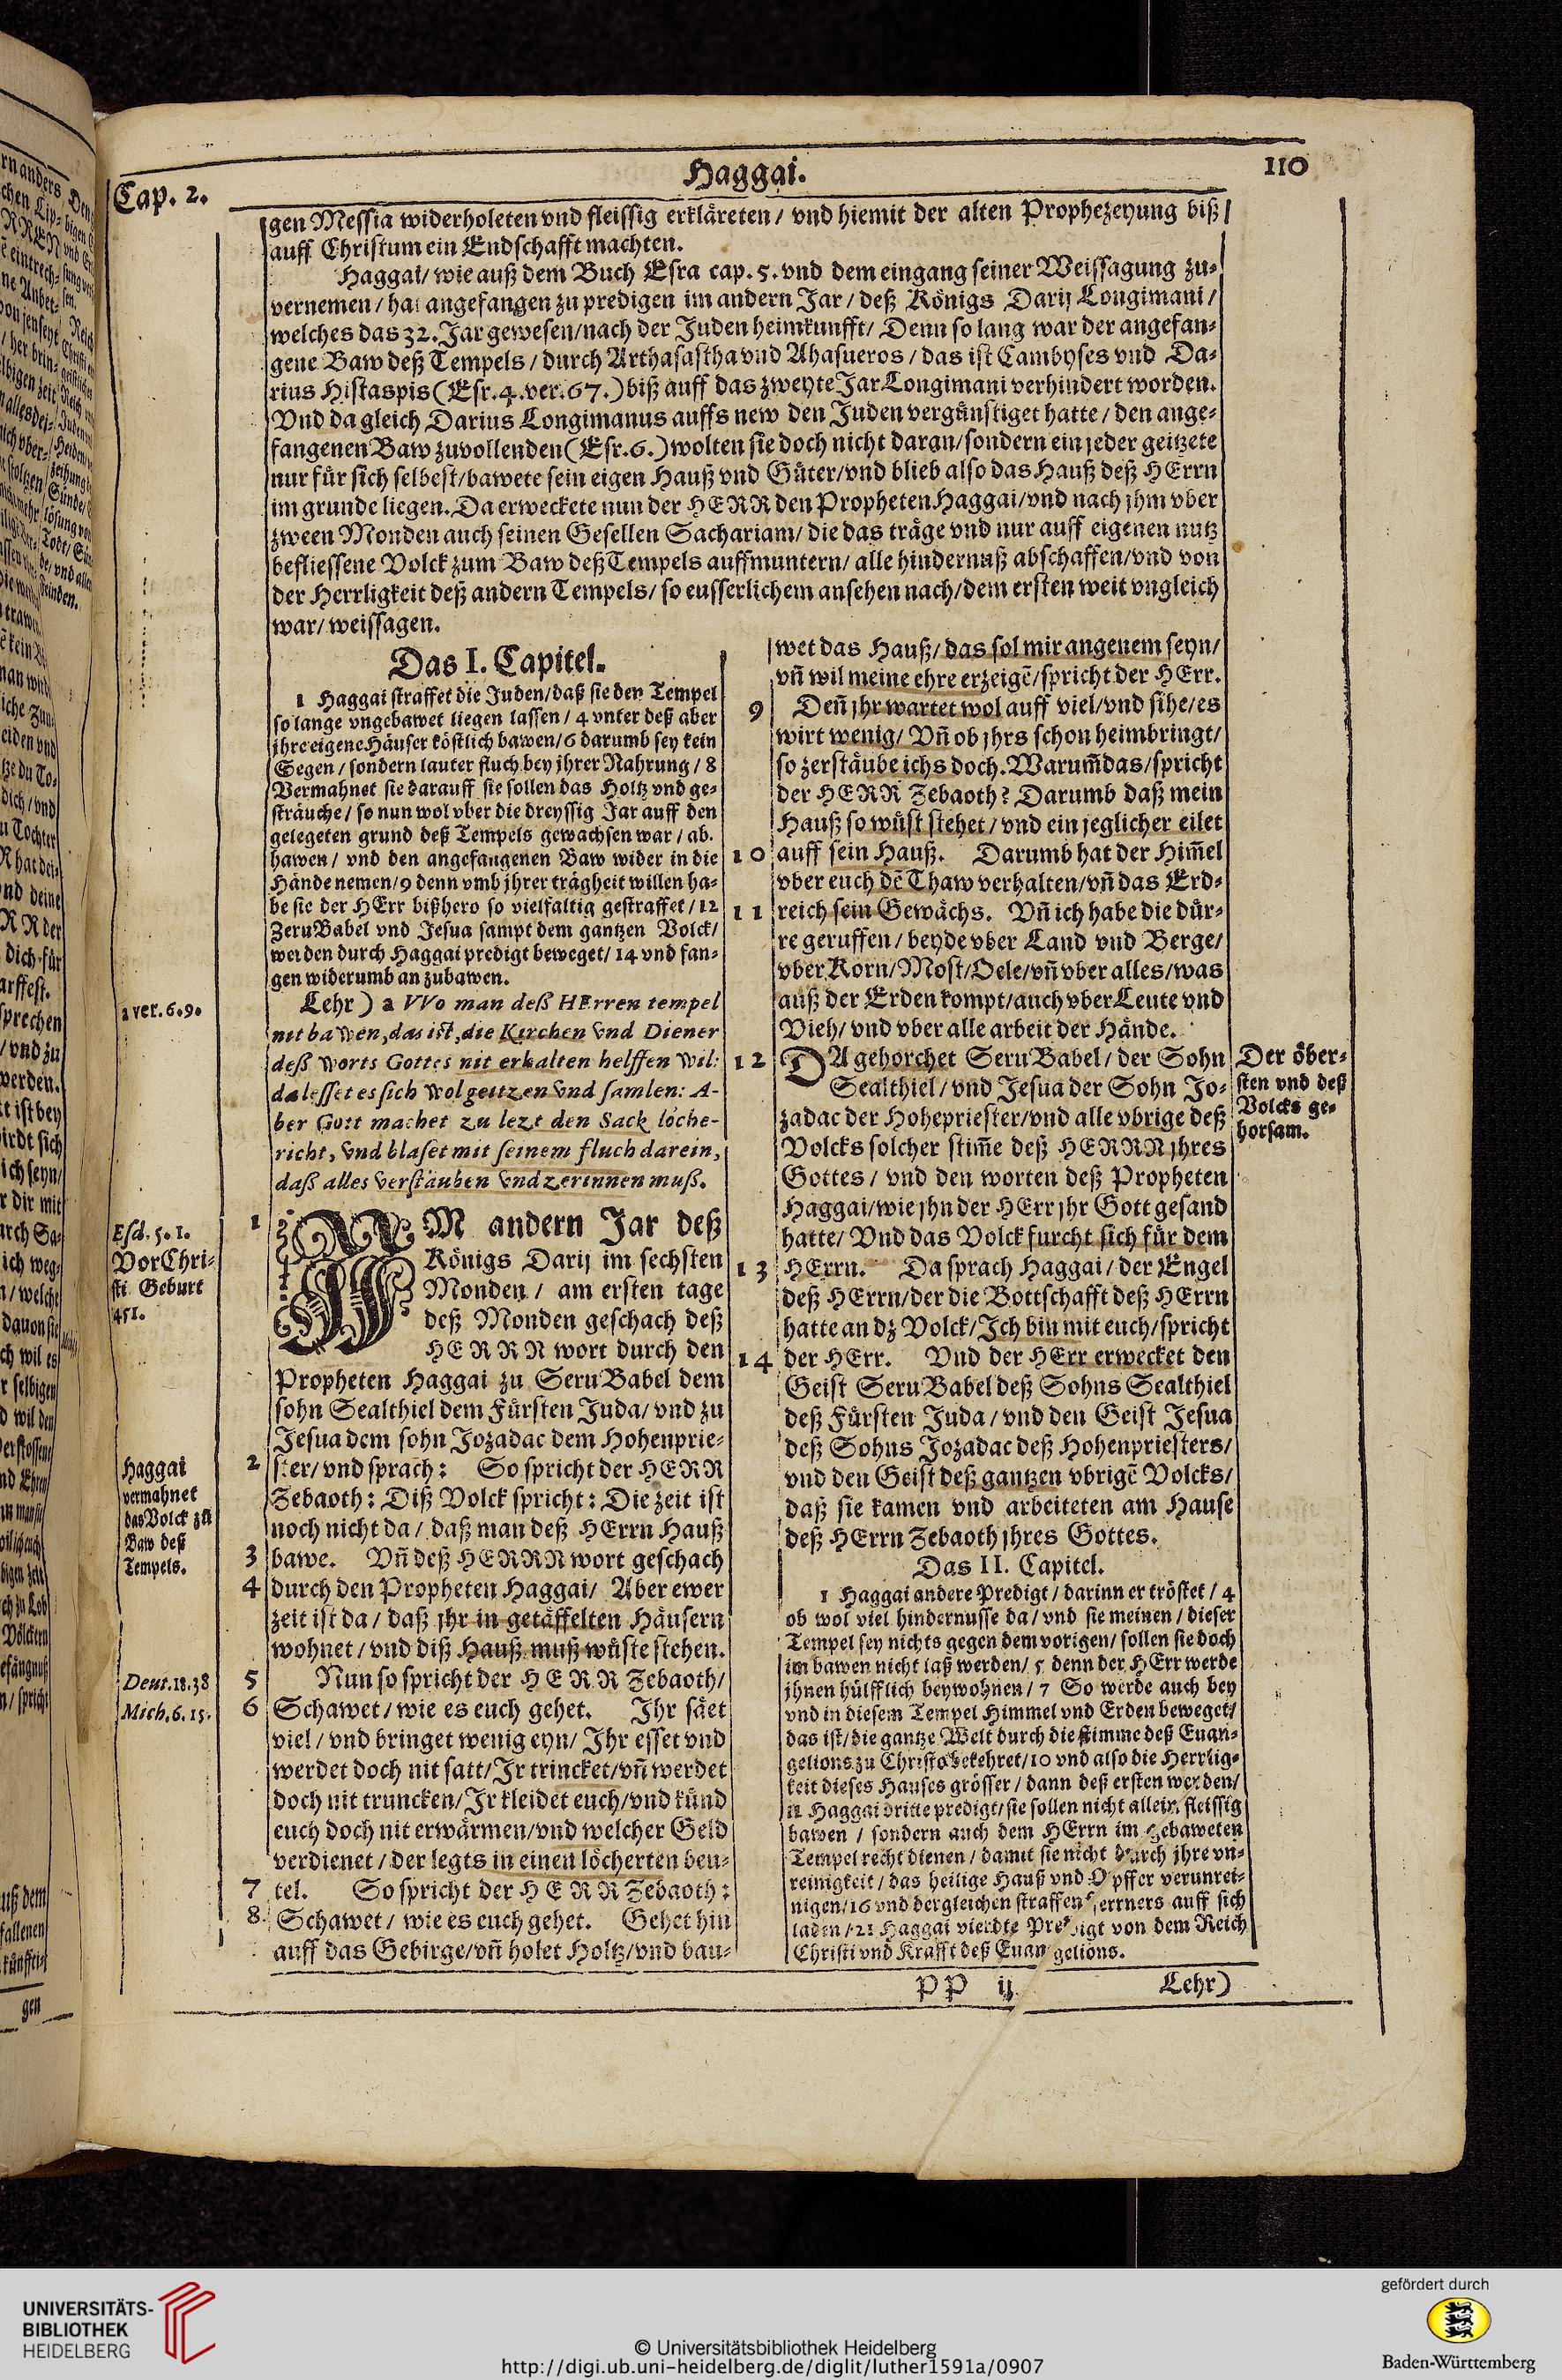 Cap. 2.
Haggai.
110
gen Messia widerholeten vnd fleissig erkläreten / vnd hiemit der alten Prophezeyung biß
auff Christum ein Endschafft machten.
Haggai / wie auß dem Buch Esra cap. 5. vnd dem eingang seiner Weissagung zu-
vernemen / hat angefangen zu predigen im andern Jar / deß Königs Darij Longimani /
welches das 32. Jar gewesen / nach der Juden heimkunfft / Denn so lang war der angefan-
gene Baw deß Tempels / durch Arthasastha vnd Ahasueros / das ist Cambyses vnd Da-
rius Histaspis (Esr. 4. ver. 67.) biß auff das zweyte Jar Longimani verhindert worden.
Vnd da gleich Darius Longimanus auffs new den Juden vergünstiget hatte / den ange-
fangenen Baw zuvollenden (Esr. 6.) wolten sie doch nicht daran / sondern ein jeder geitzete
nur für sich selbest / bawete sein eigen Hauß vnd Güter / vnd blieb also das Hauß deß HErrn
im grunde liegen. Da erweckete nun der HERR den Propheten Haggai / vnd nach jhm vber
zween Monden auch seinen Gesellen Sachariam / die das träge vnd nur auff eigenen nutz
befliessene Volck zum Baw deß Tempels auffmuntern / alle hindernuß abschaffen / vnd von
der Herrligkeit deß andern Tempels / so eusserlichem ansehen nach / dem ersten weit vngleich
war / weissagen.
Das I. Capitel.
1 Haggai straffet die Juden / daß sie den Tempel
so lange vngebawet liegen lassen / 4 vnter deß aber
jhre eigene Häuser köstlich bawen / 6 darumb sey kein
Segen / sondern lauter fluch bey jhrer Nahrung / 8
Vermahnet sie darauff sie sollen das Holtz vnd ge-
sträuche / so nun wol vber die dreyssig Jar auff den
gelegeten grund deß Tempels gewachsen war / ab.
hawen / vnd den angefangenen Baw wider in die
Hände nemen / 9 denn vmb jhrer trägheit willen ha-
be sie der HErr bißhero so vielfaltig gestraffet / 12
ZeruBabel vnd Jesua sampt dem gantzen Volck /
werden durch Haggai predigt beweget / 14 vnd fan-
gen widerumb an zubawen.
a ver. 6.9.
Lehr) a VVo man deß HErren tempel
nit bawen, das ist, die Kirchen vnd Diener
deß worts Gottes nit erhalten helffen wil:
da lesset es sich wol geitzen vnd samlen: A-
ber Gott machet zu lezt den Sack löche-
richt, vnd blaset mit seinem fluch darein,
daß alles verstäuben vnd zerinnen muß.
Esd. 5. 1.
Vor Chri-
sti Geburt
451.
1 IM andern Jar deß
Königs Darij im sechsten
Monden / am ersten tage
deß Monden geschach deß
HERRN wort durch den
Propheten Haggai zu SeruBabel dem
sohn Sealthiel dem Fürsten Juda / vnd zu
Jesua dem sohn Jozadac dem Hohenprie-
Haggai
vermahnet
das Volck zů
Baw deß
Tempels.
2 ster / vnd sprach: So spricht der HERR
Zebaoth: Diß Volck spricht: Die zeit ist
noch nicht da / daß man deß HErrn Hauß
3 bawe. Vñ deß HERRN wort geschach
4 durch den Propheten Haggai / Aber ewer
zeit ist da / daß jhr in getäffelten Häusern
wohnet / vnd diß Hauß muß wüste stehen.
Deut. 18.38
Mich. 6. 15.
5 Nun so spricht der HERR Zebaoth /
6 Schawet / wie es euch gehet. Ihr säet
viel / vnd bringet wenig eyn / Ihr esset vnd
werdet doch nit satt / Jr trincket / vñ werdet
doch nit truncken / Jr kleidet euch / vnd künd
euch doch nit erwärmen / vnd welcher Geld
verdienet / der legts in einen löcherten beu-
7 tel. So spricht der HERR Zebaoth:
8 Schawet / wie es euch gehet. Gehet hin
auff das Gebirge / vñ holet Holtz / vnd bau-
wet das Hauß / das sol mir angenem seyn /
vñ wil meine ehre erzeigẽ / spricht der HErr.
9 Deñ jhr wartet wol auff viel / vnd sihe / es
wirt wenig / Vñ ob jhrs schon heimbringt /
so zerstäube ichs doch. Warum̃ das / spricht
der HERR Zebaoth? Darumb daß mein
Hauß so wüst stehet / vnd ein jeglicher eilet
10 auff sein Hauß. Darumb hat der Him̃el
vber euch dẽ Thaw verhalten / vñ das Erd-
11 reich sein Gewächs. Vñ ich habe die dür-
re geruffen / beyde vber Land vnd Berge /
vber Korn / Most / Oele / vñ vber alles / was
auß der Erden kompt / auch vber Leute vnd
Vieh / vnd vber alle arbeit der Hände.
12 DA gehorchet SeruBabel / der Sohn
Sealthiel / vnd Jesua der Sohn Jo-
zadac der Hohepriester / vnd alle vbrige deß
Volcks solcher stim̃e deß HERRN jhres
Gottes / vnd den worten deß Propheten
Haggai / wie jhn der HErr jhr Gott gesand
hatte / Vnd das Volck furcht sich für dem
13 HErrn. Da sprach Haggai / der Engel
deß HErrn / der die Bottschafft deß HErrn
hatte an dz Volck / Ich bin mit euch / spricht
14 der HErr. Vnd der HErr erwecket den
Geist SeruBabel deß Sohns Sealthiel
deß Fürsten Juda / vnd den Geist Jesua
deß Sohns Jozadac deß Hohenpriesters /
vnd den Geist deß gantzen vbrigẽ Volcks /
daß sie kamen vnd arbeiteten am Hause
deß HErrn Zebaoth jhres Gottes.
Der öber-
sten vnd deß
Volcks ge-
horsam.
Das II. Capitel.
1 Haggai andere Predigt / darinn er tröstet / 4
ob wol viel hindernusse da / vnd sie meinen / dieser
Tempel sey nichts gegen dem vorigen / sollen sie doch
im bawen nicht laß werden / 5 denn der HErr werde
jhnen hülfflich beywohnen / 7 So werde auch bey
vnd in diesem Tempel Himmel vnd Erden beweget /
das ist / die gantze Welt durch die stimme deß Euan-
gelions zu Christo bekehret / 10 vnd also die Herrlig-
keit dieses Hauses grösser / dann deß ersten werden /
11 Haggai dritte predigt / sie sollen nicht allein fleissig
bawen / sondern auch dem HErrn im gebaweten
Tempel recht dienen / damit sie nicht durch jhre vn-
reinigkeit / das heilige Hauß vnd Opffer verunrei-
nigen / 16 vnd dergleichen straffen ferrners auff sich
laden / 21 Haggai vierdte Predigt von dem Reich
Christi vnd Krafft deß Euangelions.
PP ij
Lehr)
UNIVERSITÄTS-
BIBLIOTHEK
HEIDELBERG
© Universitätsbibliothek Heidelberg
http://digi.ub.uni-heidelberg.de/diglit/luther1591a/0907
gefördert durch
Baden-Württemberg